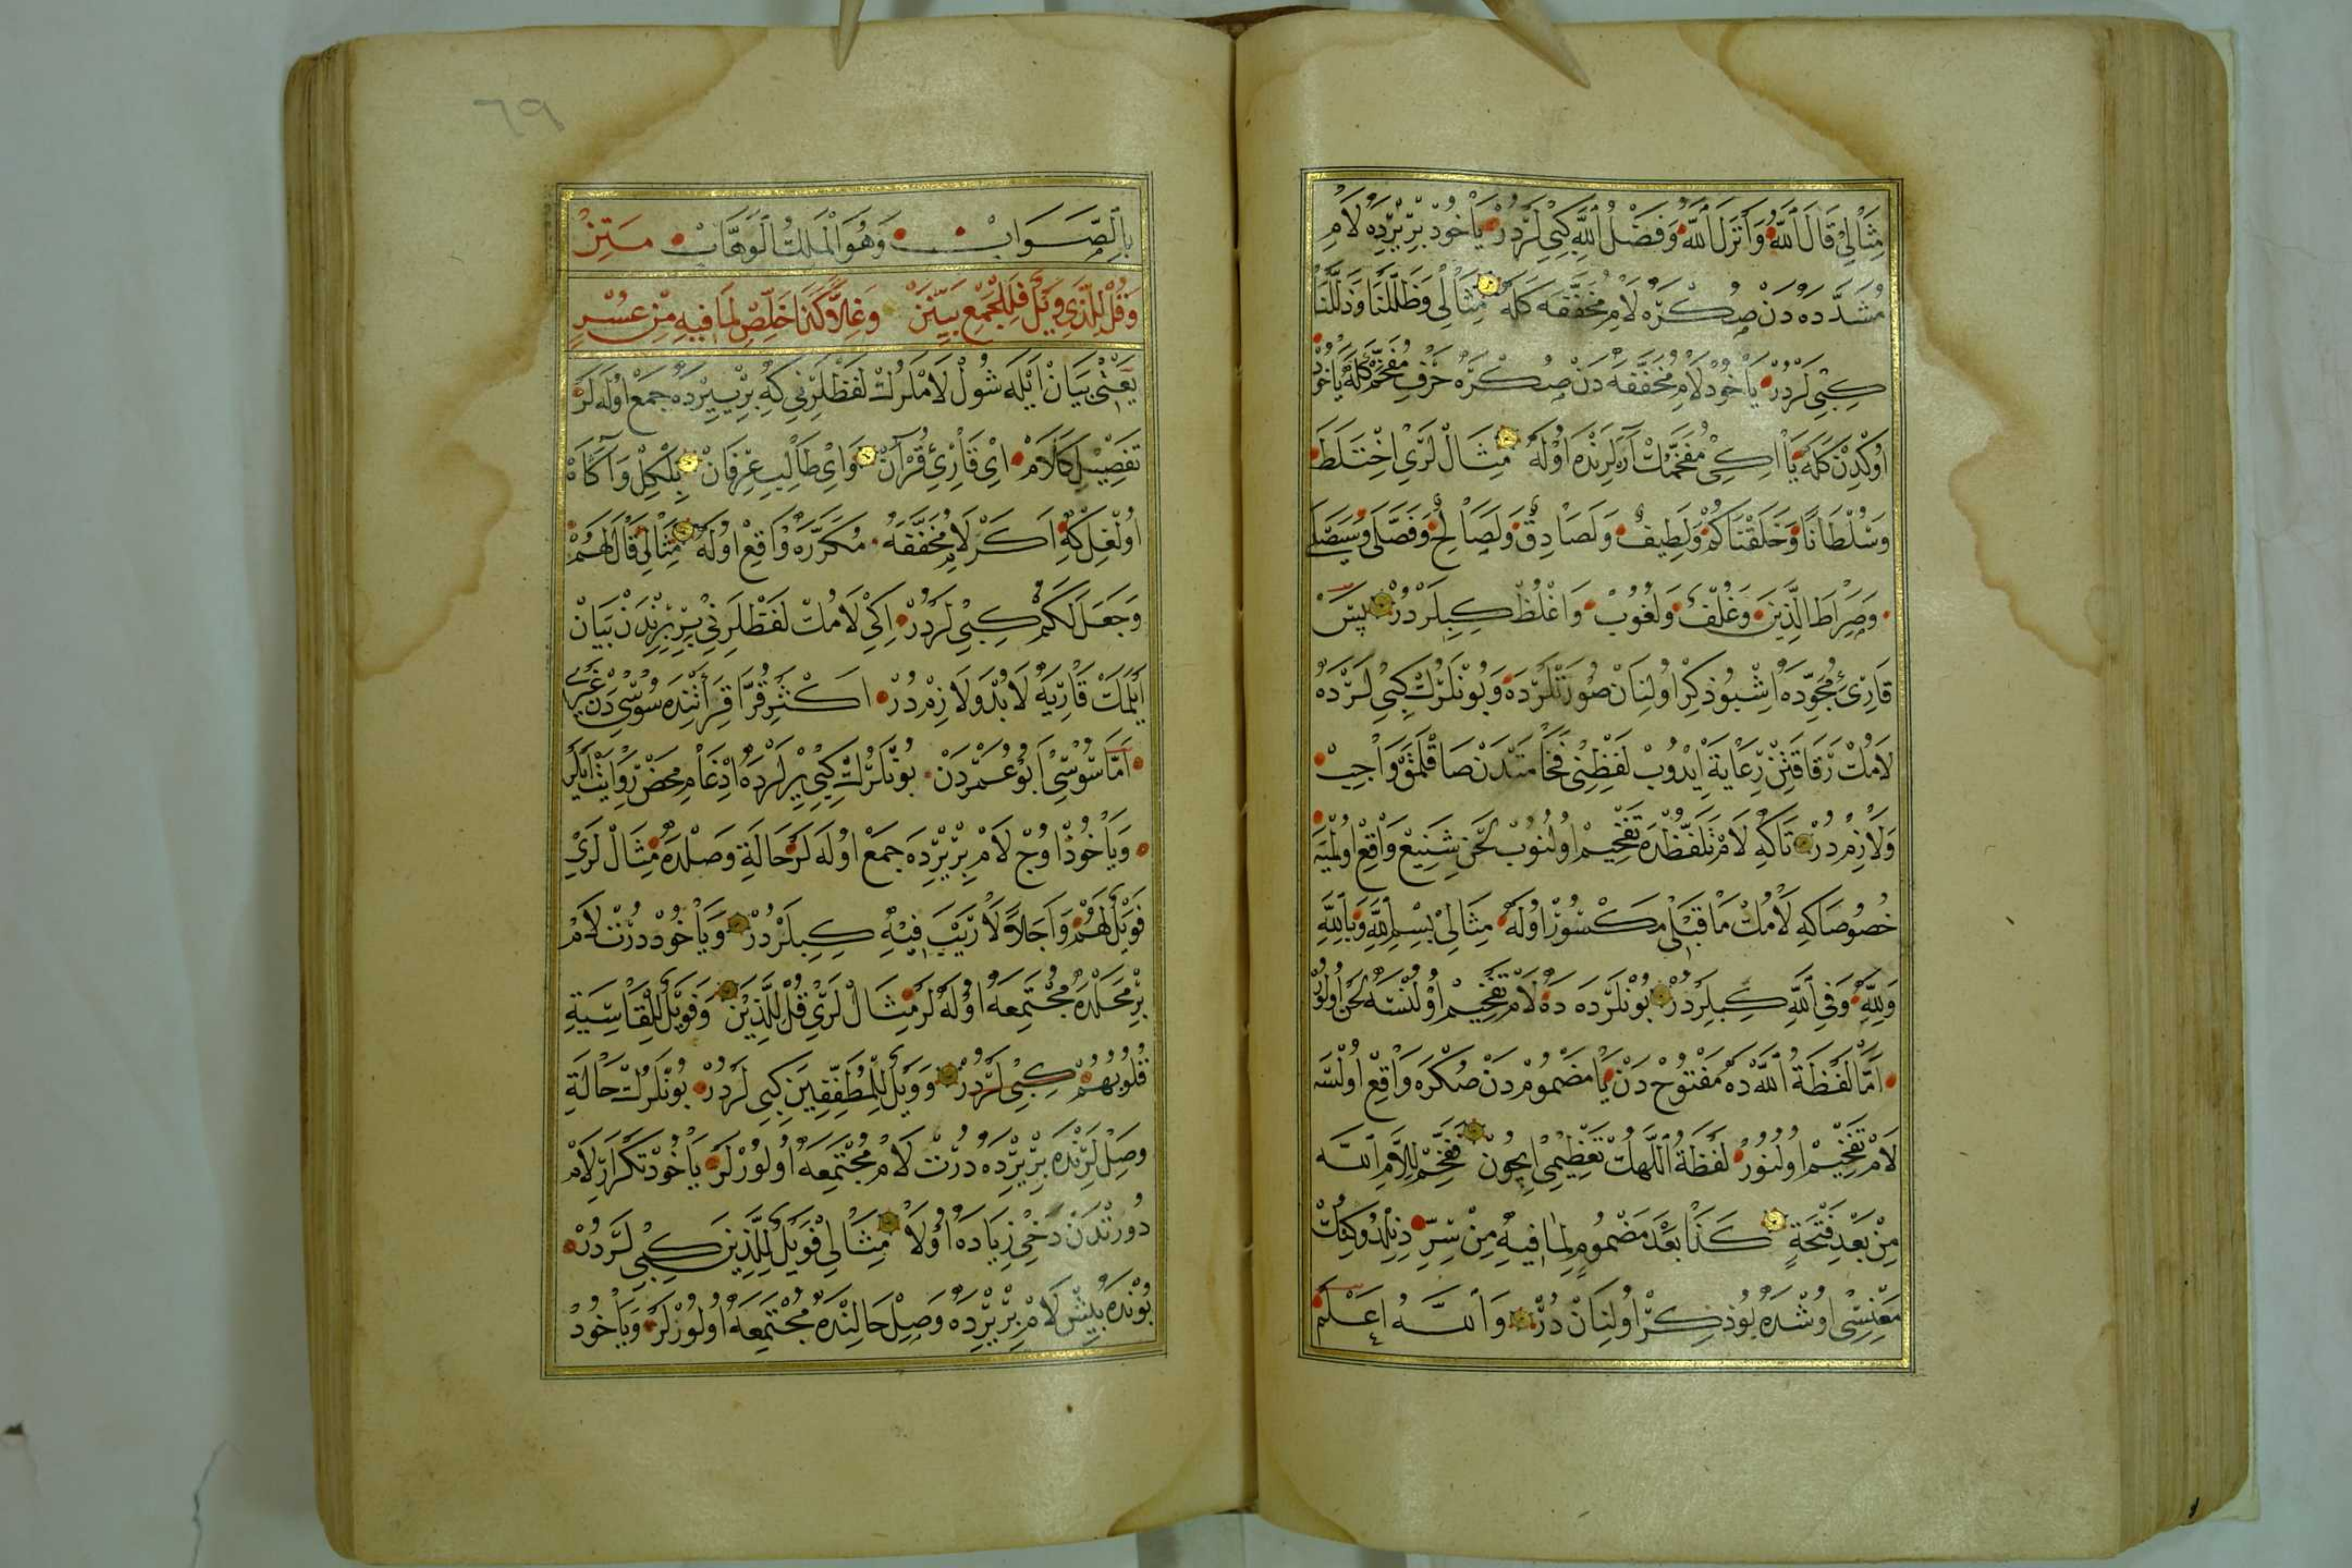 مِثَالِي قَالَ اللّٰهُ وَاَنْزَلَ اللّٰهُ وَفَضْلُ اللّٰهِ كِبِي لَرْدُرْ يَاخُودْ بِرْ يَرْدَه لَامِ
مُشَدَّدَه دَنْ صُكْرَه لَامِ مُخَفَّفَه كَلَه مِثَالِي وَظَلَّلْنَا وَذَلَّلْنَا
كِبِي لَرْدُرْ يَاخُودْ لَامِ مُخَفَّفَه دَنْ صُكْرَه حَرْفِ مُفَخَّمْ كَلَه يَاخُودْ
اوُكْدِنْ كَلَه يَا اِكِي مُفَخَّمُكْ آرَالَرِنْدَه اوُلَه مِثَالْ لَرِي اِخْتَلَطَ
وَسُلْطَانًا وَخَلَقْنَاكُمْ وَلَطِيفٌ وَلَصَادِقٌ وَلَصَالِحٌ وَفَصَّلَ وَسَيَصْلَى
وَصِرَاطَ الَّذِينَ وَغُلْفٌ وَلُغُوبٌ وَاغْلُظْ كِبِيلَرْدُرْ پَسْ
قَارِئِ مُجَوِّدَه اِشْبُو ذِكِرْ اوُلِنَانْ صُورَتْلَرْدَه وَبُونْلَرُكْ كِبِي لَرْدَه
لَامُكْ رَقَاقَتِنْ رِعَايَةِ اِيدُوبْ لَفْظِنِي فَخَامَتْدَنْ صَاقْلَمَقْ وَاجِبْ
وَلَازِمْ دُرْ تَاكِه لَامْ تَلَفُّظْدَه تَفْخِيمْ اوُلُنُوبْ لَحْنِ شَنِيعْ وَاقِعْ اوُلْمَيَه
خُصُوصَاكِه لَامُكْ مَاقَبْلِي مَكْسُورْ اوُلَه مِثَالِي بِسْمِ اللّٰهِ وَبِاللّٰهِ
وَلِلّٰهِ وَفِي اللّٰهِ كِبِيلَرْدُرْ بُونْلَرْدَه دَه لَامْ تَفْخِيمْ اوُلُنْسَه لَحْنْ اوُلُورْ
اَمَّا لَفْظَةُ اللّٰه دَه مَفْتُوحْ دَنْ يَا مَضْمُومْ دَنْ صُكْرَه وَاقِعْ اوُلْسَه
لَامْ تَفْخِيمْ اوُلُنُورْ لَفْظَةُ اللّٰهُكْ تَعْظِيمِي اِيچُونْ فَفَخِّمْ لِلَامِ اللّٰه
مِنْ بَعْدِ فَتْحَةٍ كَذَا بَعْدَ مَضْمُومٍ لِمَا فِيهِ مِنْ سِرِّ
مَعْنِيسِي اوُشْدَه بُو ذِكِرْ اوُلِنَانْ دُرْ وَاللّٰهُ اَعْلَمْ
بِالصَّوَابْ وَهُوَ الْمَلِكُ الْوَهَّابْ مَتِنْ
وَقُلْ لِلَّذِي وَيْلٌ فَلِلْجَمْعِ بَيِّنَنْ وَغِلًّا كَذَا خَلِّصْ لِمَا فِيهِ مِنْ عُسْرِ
يَعْنِي بَيَانْ اَيْلَه شُولْ لَامْلَرُكْ لَفْظْلَرِنِي كِه بِرْ يِيرْدَه جَمْعْ اوُلَه لَرْ
تَفْصِيلِ كَلَامْ اَيْ قَارِئِ قُرْآنْ وَاَيْ طَالِبِ عِرْفَانْ بِلْكِلْ وَآكَاهْ
اوُلْغِلْ كِه اَكَرْ لَامِ مُخَفَّفَه مُكَرَّرَه وَاقِعْ اوُلَه مِثَالِي قَالَ لَهُمْ
وَجَعَلَ لَكُمْ كِبِي لَرْدُرْ اِكِي لَامُكْ لَفْظْلَرِنِي بِرْ بِرِنْدَنْ بَيَانْ
اَيْلَمَكْ قَارِيَه لَابُدْ وَلَازِمْدُرْ اَكْثَرِ قُرَّا قِرَأَتِنْدَه سُوسِي دَنْ غَيْرِي
اَمَّا سُوسِي اَبُو عُمَرْدَنْ بُونْلَرُكْ كِبِي يِرْلَرْدَه اِدْغَامِ مَحْضْ رِوَايَتْ اَيْلَرْ
وَيَاخُودْ اوُچْ لَامْ بِرْ يِرْدَه جَمْعْ اوُلَه لَرْ حَالَةِ وَصْلْدَه مِثَالْ لَرِي
فَوَيْلٌ لَهُمْ وَاَجَلًا لَا رَيْبَ فِيهِ كِبِيلَرْدُرْ وَيَاخُودْ دُرْتْ لَامْ
بِرْ مَحَلْدَه مُجْتَمِعَه اوُلَه لَرْ مِثَالْ لَرِي قُلْ لِلَّذِينَ وَفَوَيْلٌ لِلْقَاسِيَةِ
قُلُوبُهُمْ كِبِي لَرْدُرْ وَوَيْلٌ لِلْمُطَفِّفِينَ كِبِي لَرْدُرْ بُونْلَرُكْ حَالَةِ
وَصِلْ لَرِنْدَه بِرْ يِرْدَه دُرْتْ لَامْ مُجْتَمِعَه اوُلُورْلَرْ يَاخُودْ تَكْرَارْ لَامْ
دُورْتْدَنْ دَخِي زِيَادَه اوُلَا مِثَالِي فَوَيْلٌ لِلَّذِينَ كِبِي لَرْدُرْ
بُونْدَه بِيشْ لَامْ بِرْ يِرْدَه وَصِلْ حَالِنْدَه مُجْتَمِعَه اوُلُورْلَرْ وَيَاخُودْ